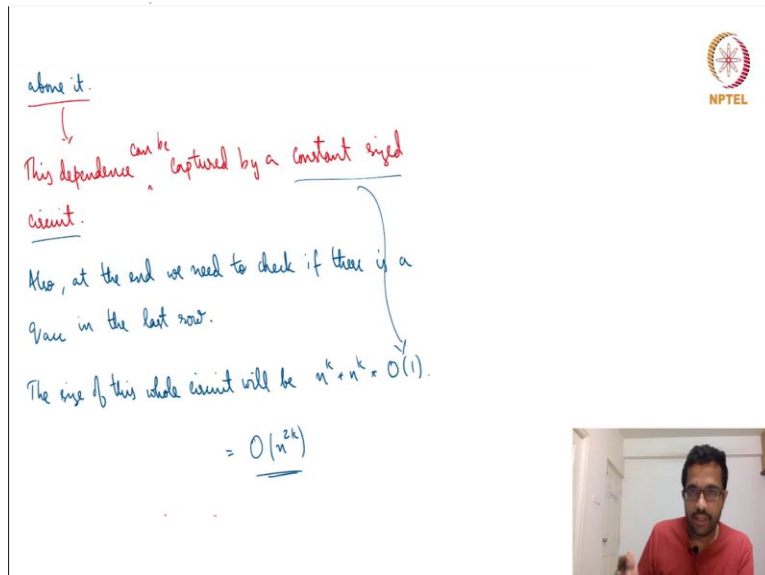 above it.
NPTEL
This dependence can be captured by a constant sized
circuit.
Also, at the end we need to check if there is a
qacc in the last row.
The size of this whole circuit will be n^k * n^k * O(1).
= O(n^2k)